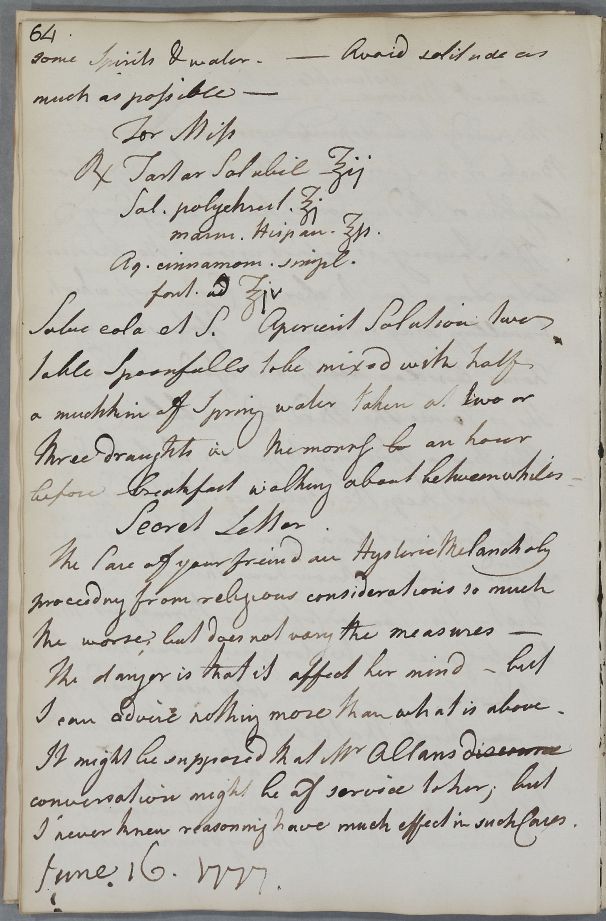 64.
some Spirits & water. — Avoid solitude as
much as possible —
For Miss
℞ Tartar Solubil ʒij
Sal. polychrest. ʒj
mann. Hispan. ʒß.
Aq. cinnamom. simpl.
font. ad ℥iv
Solve cola et S. Aperient Solution two
table Spoonfulls to be mixed with half
a mutchkin of Spring water taken at two or
three draughts in the morng be an hour
before breakfast walking about between whiles –
Secret Letter.
The Case of your freind an Hysteric Melancholy
proceedng from religious considerations so much
the worse, but does not vary the measures —
The danger is that it affect her mind – but
I can advice nothing more than what is above –
It might be supposed that Mr Allans discourse
conversation might be of service to her; but
I never knew reasoning have much effect in such Cases.
June. 16. 1777.